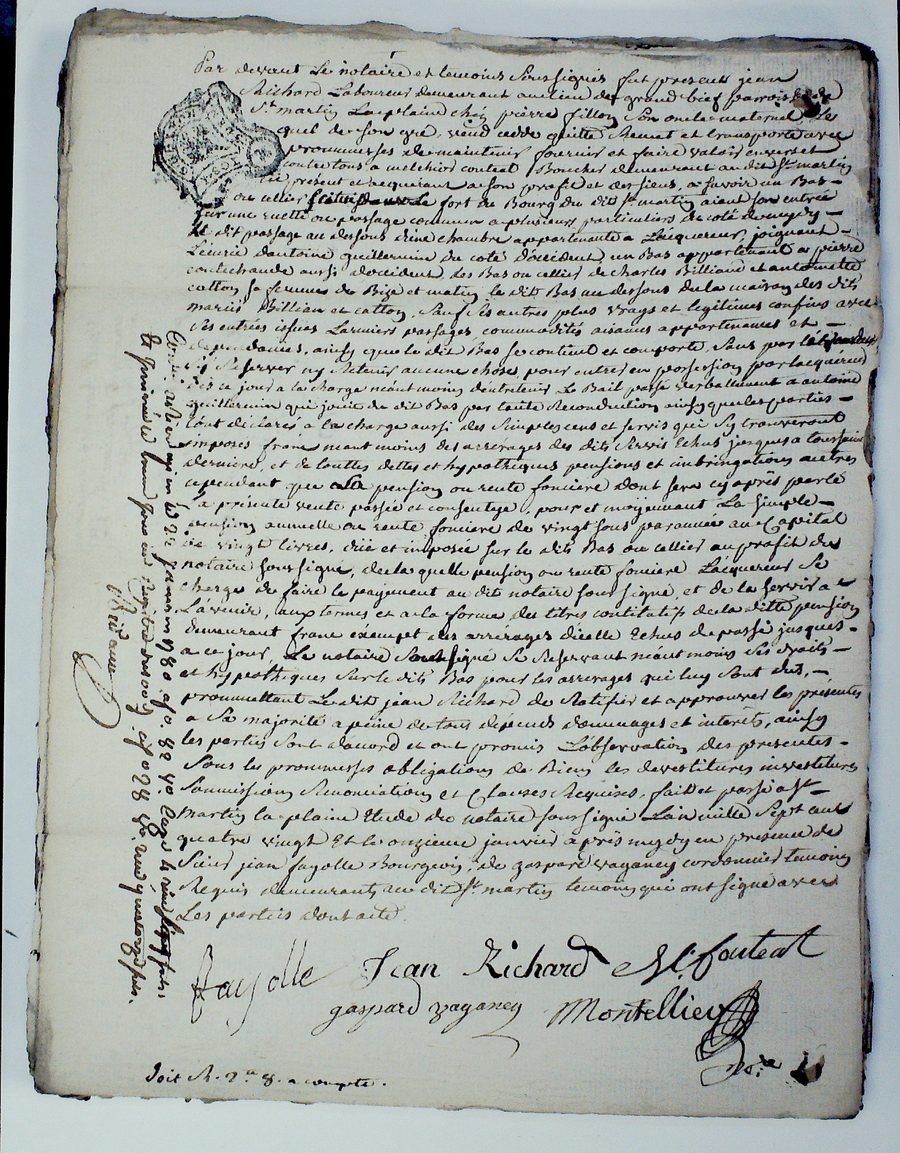 Par devant Le notaire et temoins Soussignés fut present jean
Richard Laboureur demeurant au lieu de grand bief parroisse de
St martin La plaine chés pierre fillon Son oncle maternel, Le
quel de Son gré, vend cede quitte Remet et transporte avec
prommesses de maintenir fournir et faire valoir envers et
contre tous a melchior couteat Boucher demeurant au dit St martin
present et acquerant a Son profit et des siens, a savoir un Bas
ou cellier Le fort du Bourg du dit St martin aiant son entrée
Sur une ruette ou passage commun a plusieurs particuliers de coté de midy
Le dit passage au dessous d'une chambre appartenante a L'acquereur, joignant
L'ecurie d'antoine guillermin de coté d'occident un Bas appartenant a pierre
aussi d'occident, Les Bas ou cellier de Charles Billiand et antoinette
catton sa femme de Bize et matin le dit Bas au dessous de la maison des dits
mariés Billian et catton, Sauf Ses autres plus vrays et legitimes confins avec
Ses entrées issues Larmiers passages commodités aisances appartenances et
dependances, ainsy que le dit Bas Se contient et comporte, Sans par le
S'y Reserver ny Retenir aucune chose, pour entrer en possession par l'acquereur
Dès ce jour a la charge néant moins d'entretenir Le Bail passé verballement a antoine
guillermin qui jouit du dit Bas par tacite Reconduction ainsy que les parties
L'ont declaré a la charge aussi des Simples cens et servis qui S'y trouveront
imposés franc néant moins des arrérages des dits Servis Echus jusques a toussaint
derniere, et de touttes dettes et hypotheques pensions et autres
cependant que celle pension ou rente fonciere dont Sera cy après parlé
La présente vente passée et consentye, pour et moyennant La Simple
pension annuelle ou rente fonciere de vingt sous par année au Capital
de vingt livres, düe et imposée sur le dit Bas ou cellier au profit du
notaire Soussigné, de la quelle pension ou rente fonciere L'acquereur Se
charge de faire le payement au dit notaire soussigné, et de la Servir a
L'avenir, aux termes et a la forme des titres constitutifs de la ditte pension
demeurant franc exempt des arrerages d'icelle Echus de passé jusques
a ce jour, Le notaire Soussigné Se Reservant néant moins Ses droits
et hypotheques Sur le dit Bas pour les arrerages qui luy Sont dus,
prommettant Le dit jean Richard de Ratifier et approuver les présentes
a Sa majorité a peine de tous depends dommages et interets, ainsy
les parties Sont d'accord et ont promis L'observation des presentes
Sous les prommesses obligations de Biens les devestitures investitures
Soumissions Renonciations et Clauses Requises, fait et passé a St
Martin la plaine Etude du notaire soussigné L'an mille Sept cent
quatre vingt Et le onzieme janvier après midy en presence de
Sieur jean fayolle Bourgeois, de gaspard vaganey cordonnier temoins
Requis demeurants au dit St martin temoins qui ont signé avec
Les parties dont acte.
fayolle Jean Richard M. fouteat
gaspard vaganey Montellier
Nore
Doit M. a compte.